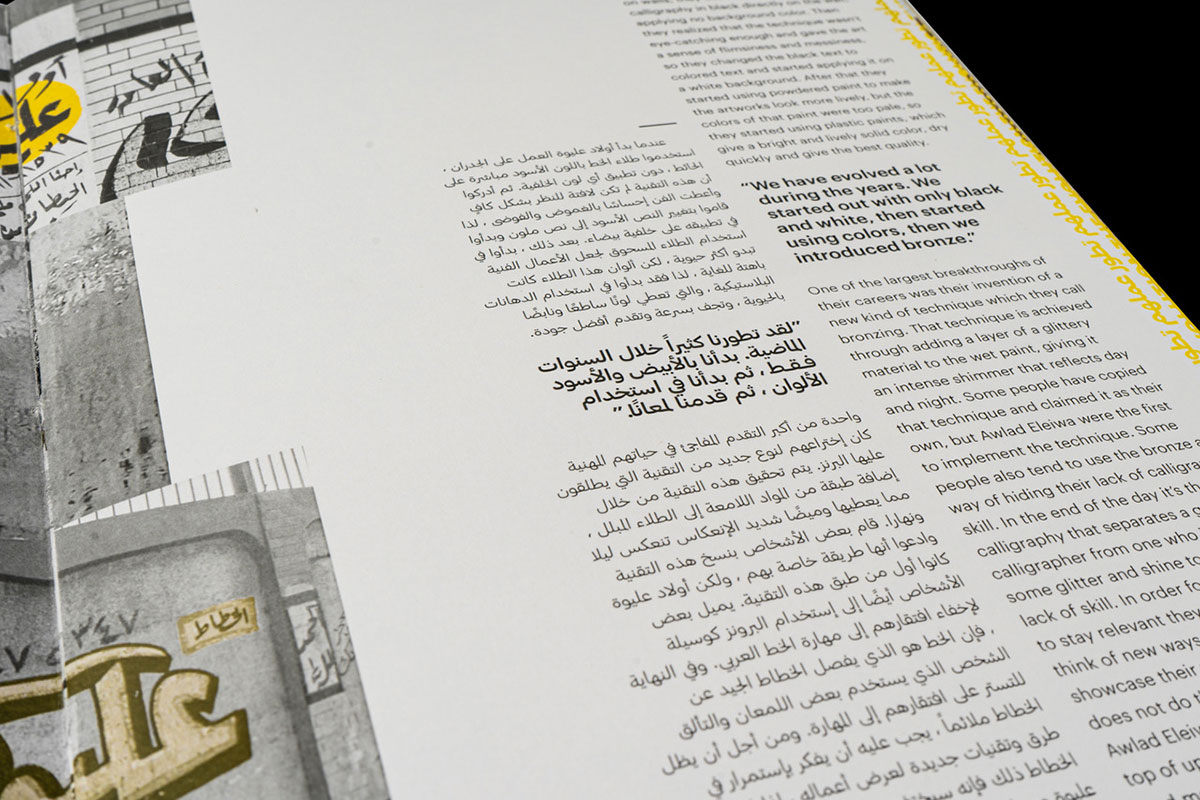 calligraphy in black directly on the wall,
applying no background color. Then
they realized that the technique wasn't
eye-catching enough and gave the art
a sense of flimsiness and messiness.
so they changed the black text to
colored text and started applying it on
a white background. After that they
started using powdered paint to make
the artworks look more lively, but the
colors of that paint were too pale, so
they started using plastic paints, which
give a bright and lively solid color, dry
quickly and give the best quality.
"We have evolved a lot
during the years. We
started out with only black
and white, then started
using colors, then we
introduced bronze."
One of the largest breakthroughs of
their careers was their invention of a
new kind of technique which they call
bronzing. That technique is achieved
through adding a layer of a glittery
material to the wet paint, giving it
an intense shimmer that reflects day
and night. Some people have copied
that technique and claimed it as their
own, but Awlad Eleiwa were the first
to implement the technique. Some
people also tend to use the bronze a
way of hiding their lack of calligra
skill. In the end of the day it's th
calligraphy that separates a g
calligrapher from one who
some glitter and shine to
lack of skill. In order fo
to stay relevant they
think of new ways
showcase their
does not do
Awlad Eleiwa
top of up
عندما بدأ أولاد عليوة العمل على الجدران ،
استخدموا طلاء الخط باللون الأسود مباشرة على
الحائط ، دون تطبيق أي لون الخلفية. ثم أدركوا
أن هذه التقنية لم تكن لافتة للنظر بشكل كافي
وأعطت الفن إحساسًا بالغموض والفوضى ، لذا
قاموا بتغيير النص الأسود إلى نص ملون وبدأوا
في تطبيقه على خلفية بيضاء. بعد ذلك ، بدأوا في
استخدام الطلاء المسحوق لجعل الأعمال الفنية
تبدو أكثر حيوية ، لكن ألوان هذا الطلاء كانت
باهتة للغاية ، لذا فقد بدأوا في استخدام الدهانات
البلاستيكية ، والتي تعطي لونًا ساطعًا ونابضًا
بالحيوية ، وتجف بسرعة وتقدم أفضل جودة.
"لقد تطورنا كثيراً خلال السنوات
الماضية. بدأنا بالأبيض والأسود
فقط ، ثم بدأنا في استخدام
الألوان ، ثم قدمنا لمعانًا."
واحدة من أكبر التقدم المفاجئ في حياتهم المهنية
كان إختراعهم لنوع جديد من التقنية التي يطلقون
عليها البرنز. يتم تحقيق هذه التقنية من خلال
إضافة طبقة من المواد اللامعة إلى الطلاء المبلل ،
مما يعطيها وميضًا شديد الإنعكاس تنعكس ليلا
ونهارا. قام بعض الأشخاص بنسخ هذه التقنية
وادعوا أنها طريقة خاصة بهم ، ولكن أولاد عليوة
كانوا أول من طبق هذه التقنية. يميل بعض
الأشخاص أيضًا إلى إستخدام البرونز كوسيلة
لإخفاء افتقارهم إلى مهارة الخط العربي. وفي النهاية
، فإن الخط هو الذي يفصل الخطاط الجيد عن
الشخص الذي يستخدم بعض اللمعان والتألق
للتستر على افتقارهم إلى المهارة. ومن أجل أن يظل
الخطاط ملائماً ، يجب عليه أن يفكر بإستمرار في
طرق وتقنيات جديدة لعرض أعماله
الخطاط ذلك فإنه
تطور عملهم تطور عملهم تطور عملهم تطور
الخطاط
٣٤٧